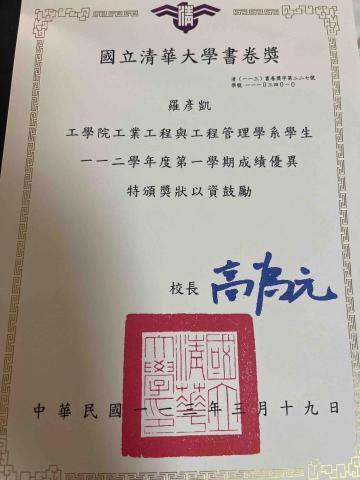 清
國立清華大學書卷獎
清(一一三)書卷獎字第二二七號
學號一一一０三四０一０
羅彥凱
工學院工業工程與工程管理學系學生
一一二學年度第一學期成績優異
特頒獎狀以資鼓勵
校長 高為元
國立清華大學印
中華民國一一三年三月十九日